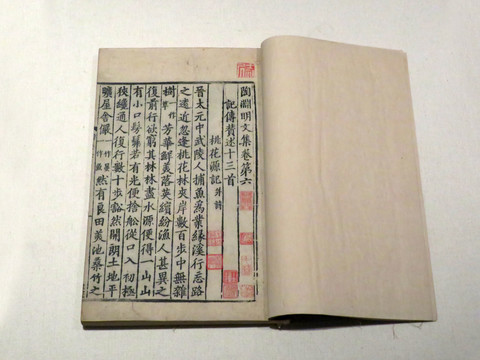 陶淵明文集卷第六
記傳贊述十三首
桃花源記并詩
晉太元中武陵人捕魚為業緣溪行忘路
之遠近忽逢桃花林夾岸數百步中無雜
樹一作芳華鮮美落英繽紛漁人甚異之
復前行欲窮其林林盡水源便得一山山
有小口髣髴若有光便捨舩從口入初極
狹纔通人復行數十步豁然開朗土地平
曠屋舍儼一作然有良田美池桑竹之